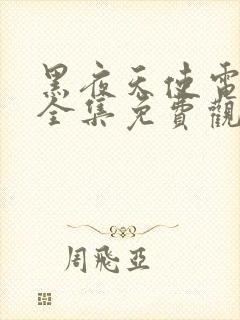 黑夜天使電
全集免費觀
周飛亞